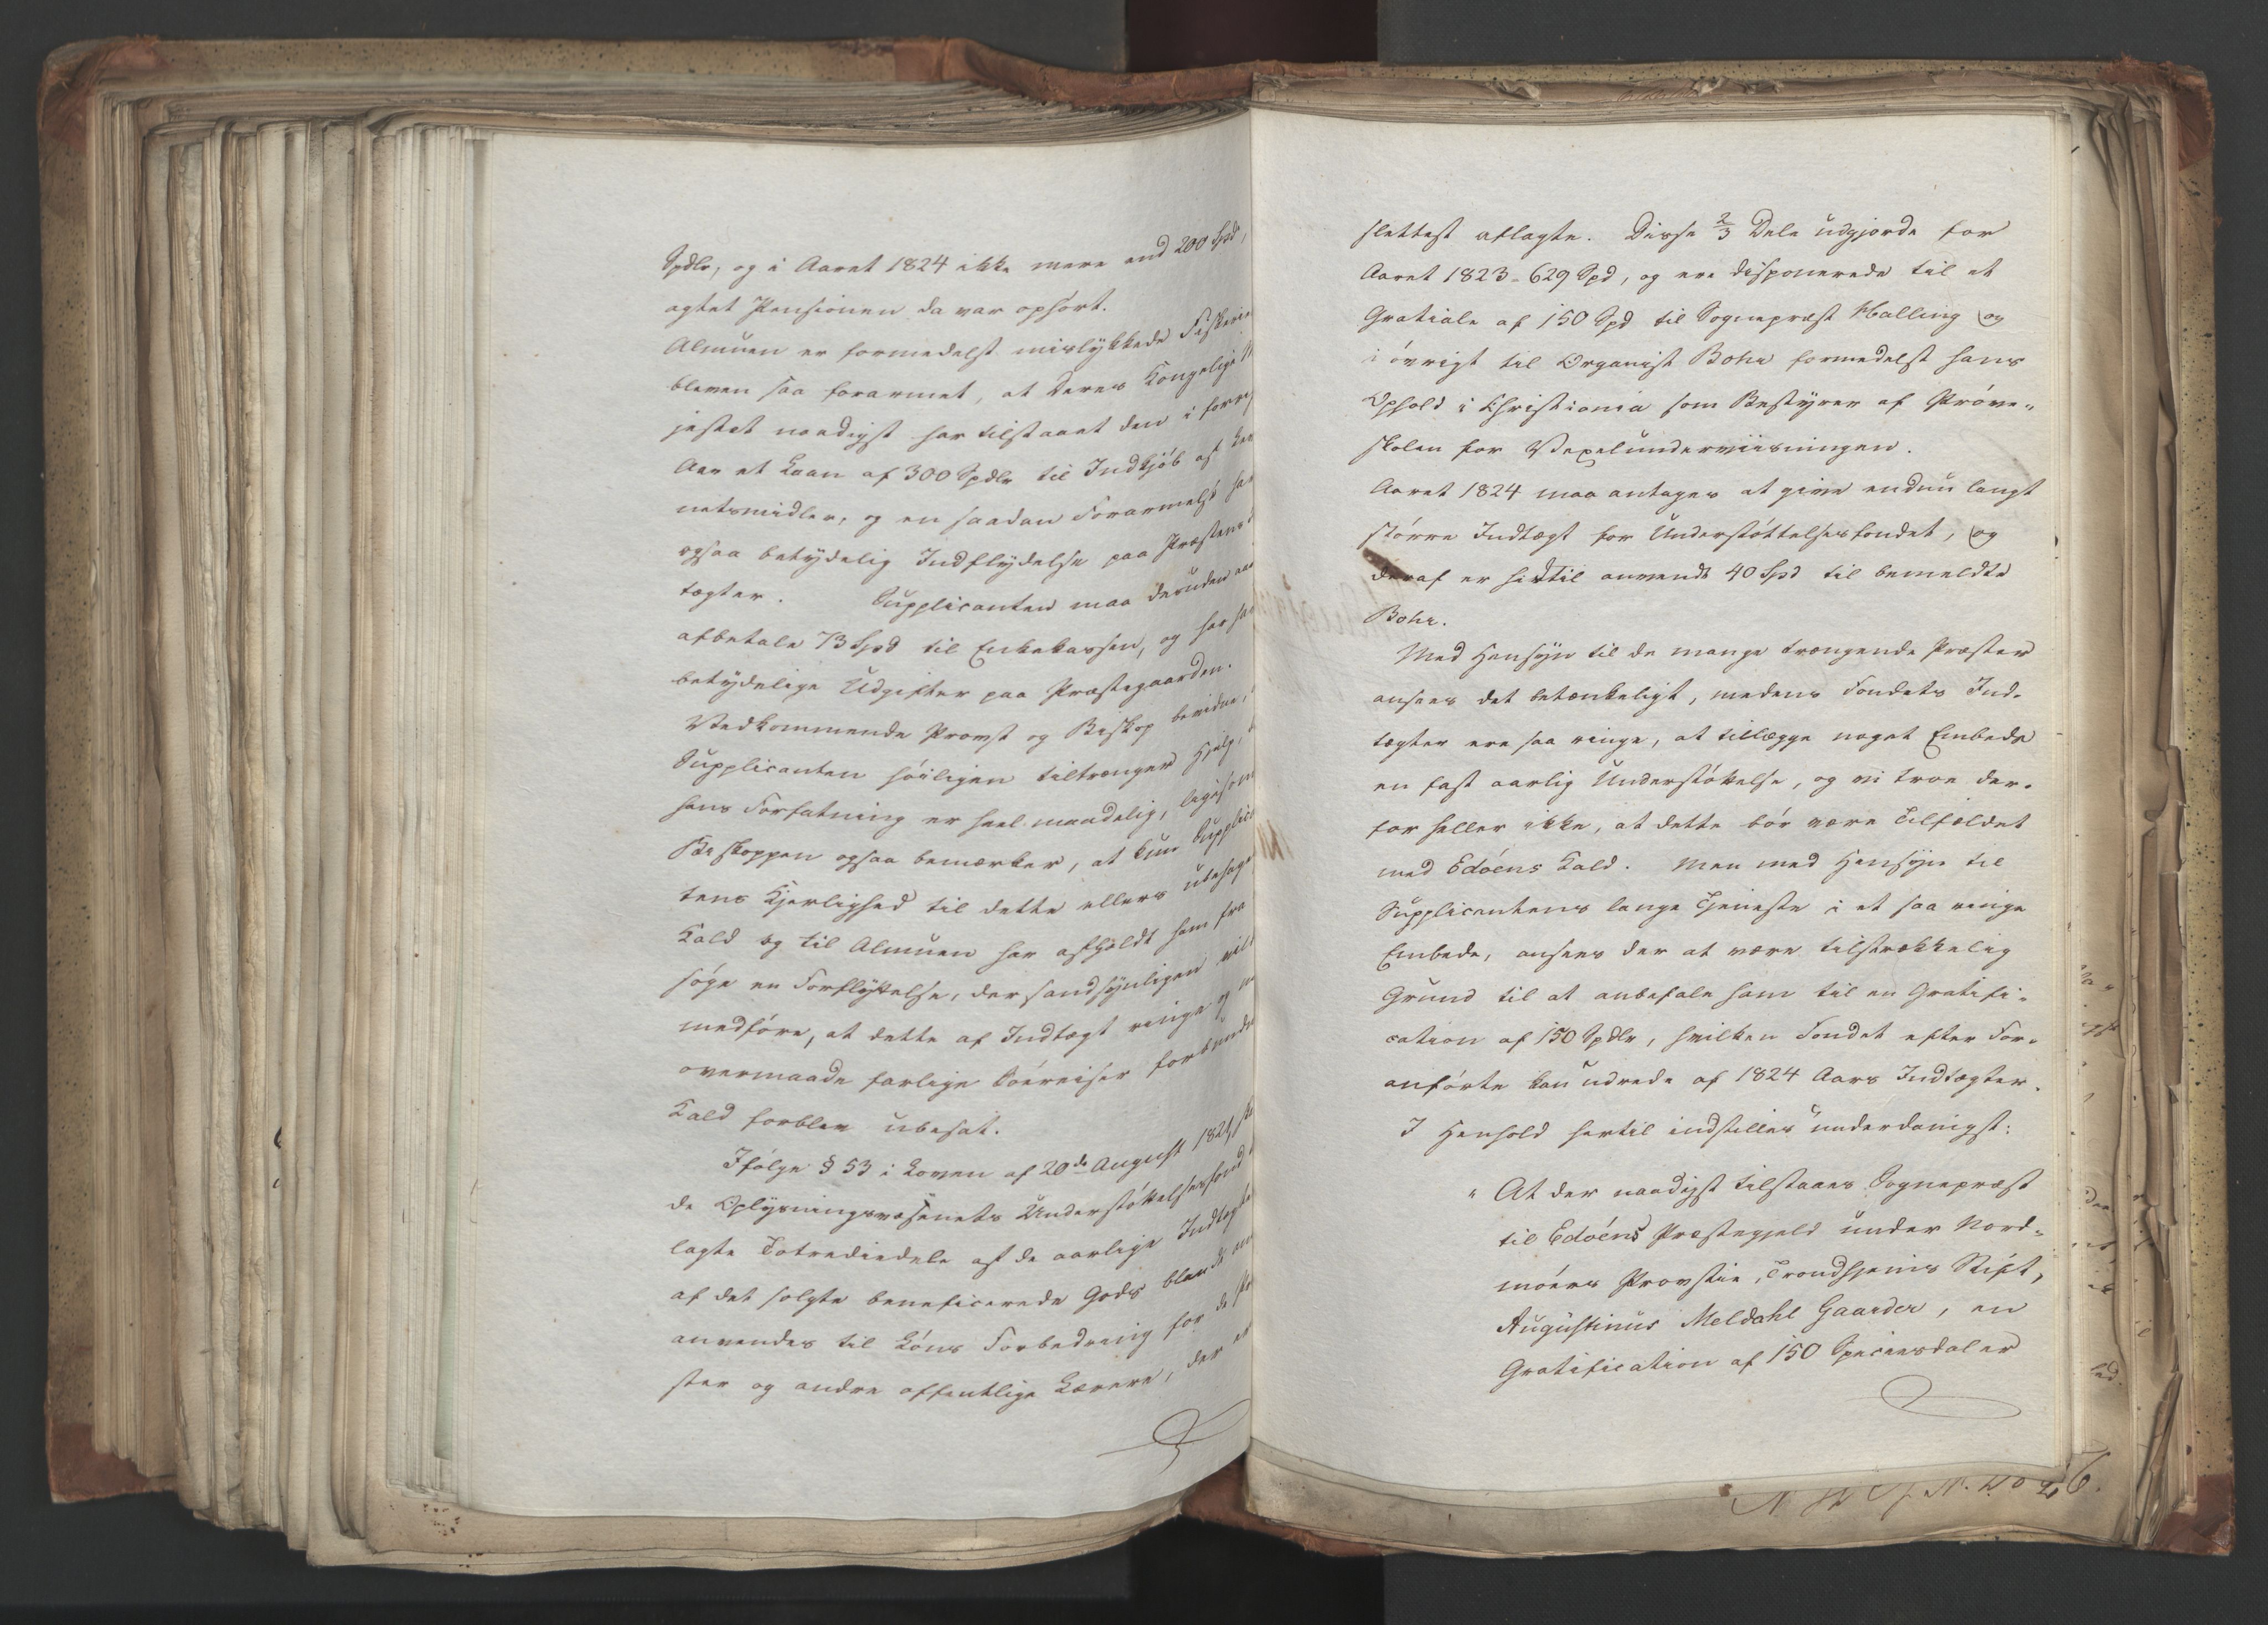 Spdlr, og i Aaret 1824 ikke mere end 200 Spd,
agtet Pensionen da var ophørt.
Almuen er formedelst mislykkede Fiskerie
bleven saa forarmet, at Deres Kongelige M
jestet naadigst har tilstaaet den i forrig
Aar et Laan af 300 Spdlr til Indkjöb af
netsmidler, og en saadan Forarmelse har
ogsaa betydelig Indflydelse paa Præstens
tægter. Supplicanten maa desuden
afbetale 73 Spd til Enkekassen, og har
betydelige Udgifter paa Præstegaarden.
Vedkommende Provst og Biskop bevidne,
Supplicanten höiligen tiltrænger Hjelp,
hans Forfatning er heel maadelig, ligesom
Biskoppen ogsaa bemærker, at kun Supplica
tens Kjerlighed til dette ellers ubehage
Kald og til Almuen har afholdt ham fra
söge en Forflyttelse, der sandsynligen vil
medføre, at dette af Indtægt ringe og
overmaade farlige Söereiser forbundne
Kald forblev ubesat.
Ifölge § 53 i Loven af 20de August 1821
de Oplysningsvæsenets Understöttelsesfond
lagte Totrediedele af de aarlige Indtægter
af det solgte beneficerede Gods blandt
anvendes til Löns Forbedring for de
ster og andre offentlige Lærere, der
slettest aflagte. Disse 2/3 Dele udgjorde for
Aaret 1823 - 629 Spd, og ere disponerede til et
Gratiale af 150 Spd til Sognepræst Malling og
i övrigt til Organist Bohr formedelst hans
Ophold i Christiania som Bestyrer af Pröve-
skolen for Vexelunderviisningen.
Aaret 1824 maa antages at give endnu langt
större Indtægt for Understöttelsesfondet, og
deraf er hidtil anvendt 40 Spd til bemeldte
Bohr.
Med Hensyn til de mange trængende Præster
ansees det betænkeligt, medens Fondets Ind-
tægter ere saa ringe, at tillægge noget Embede
en fast aarlig Understöttelse, og vi troe der-
for heller ikke, at dette bör være Tilfældet
med Edöens Kald. Men med Hensyn til
Supplicantens lange Tjeneste i et saa ringe
Embede, ansees der at være tilstrækkelig
Grund til at anbefale ham til en Gratifi-
cation af 150 Spdlr, hvilken Fondet efter For-
anförte kan udrede af 1824 Aars Indtægter.
I Henhold hertil indstilles underdanigst:
"At der naadigst tilstaaes Sognepræst
til Edöens Præstegjeld under Nord-
möers Provstie, Trondhjems Stift,
Augustinus Meldahl Gaarder, en
Gratification af 150 Speciesdaler